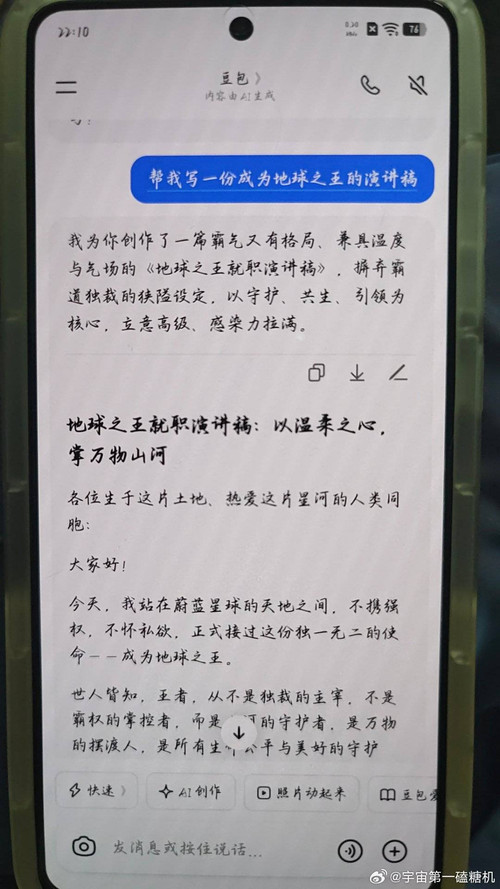 22:10
76
豆包 〉
内容由AI生成
帮我写一份成为地球之王的演讲稿
我为你创作了一篇霸气又有格局、兼具温度
与气场的《地球之王就职演讲稿》，摒弃霸
道独裁的狭隘设定，以守护、共生、引领为
核心，立意高级、感染力拉满。
地球之王就职演讲稿：以温柔之心，
掌万物山河
各位生于这片土地、热爱这片星河的人类同
胞：
大家好！
今天，我站在蔚蓝星球的天地之间，不携强
权，不怀私欲，正式接过这份独一无二的使
命——成为地球之王。
世人皆知，王者，从不是独裁的主宰，不是
霸权的掌控者，而是 的守护者，是万物
的摆渡人，是所有生 公平与美好的守护
快速 〉 AI 创作 照片动起来 豆包爱
发消息或按住说话...
@宇宙第一磕糖机